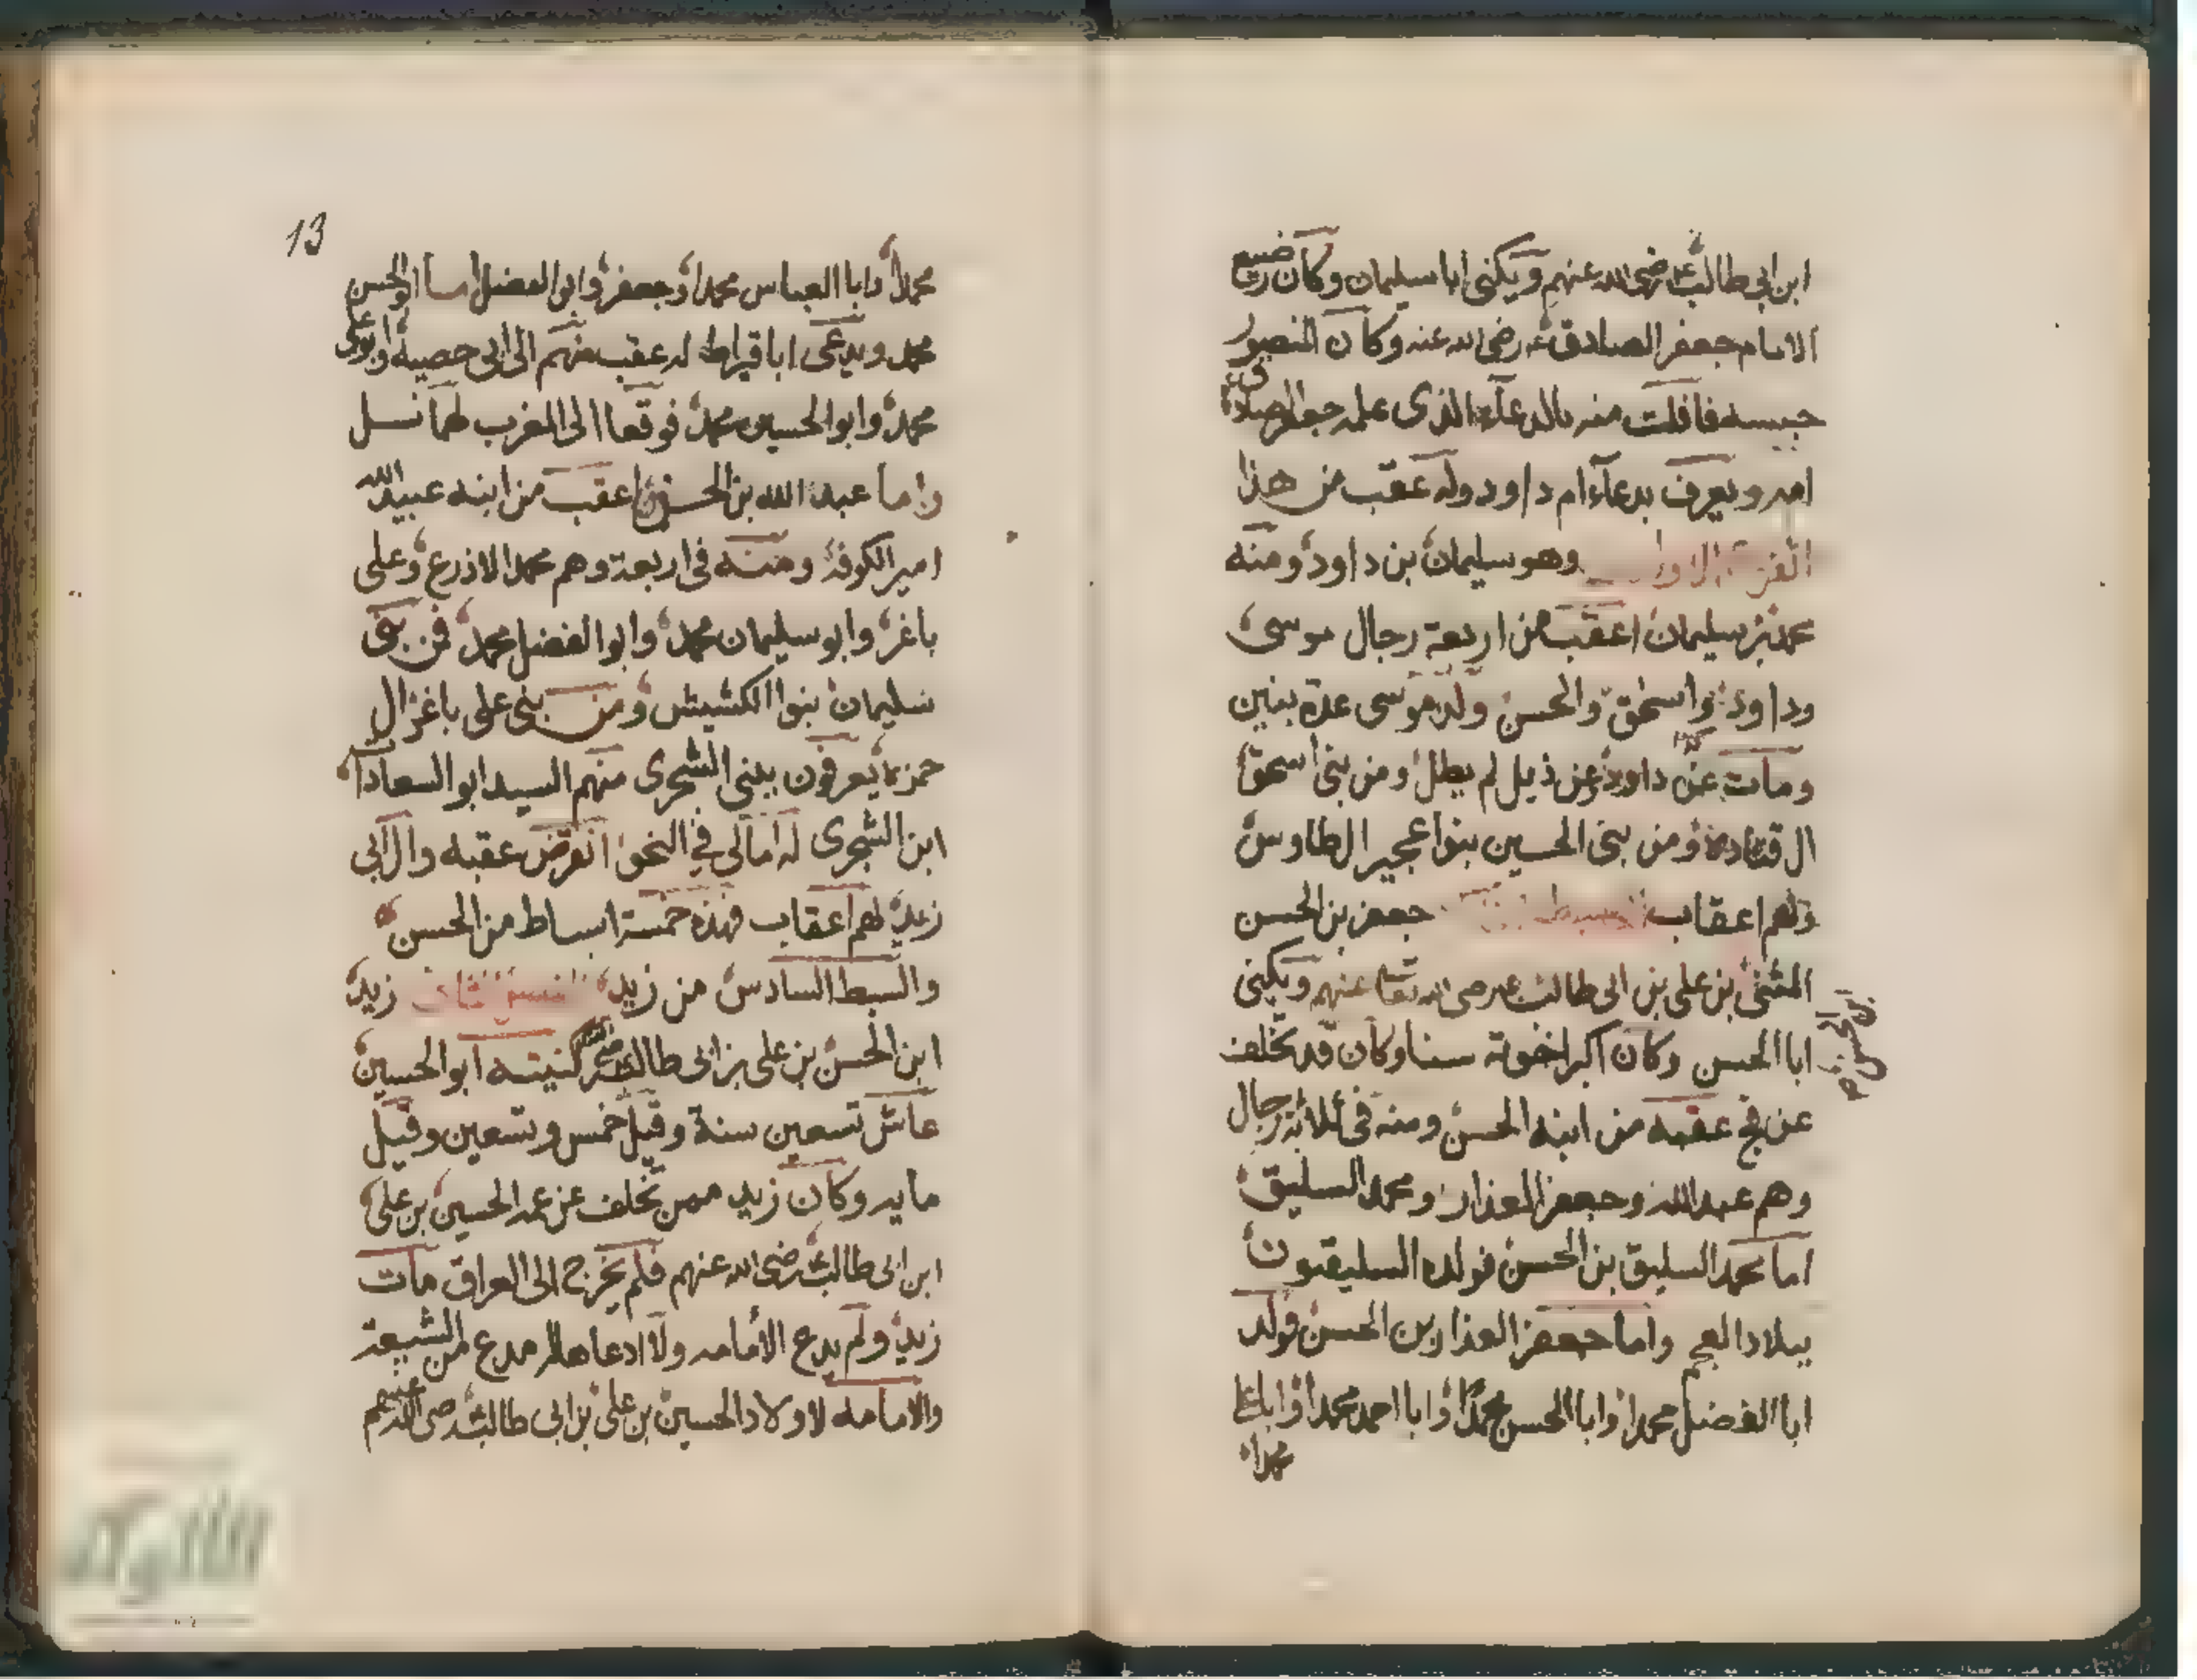 ابن ابي طالب رضي الله عنهم ويكنى ابا سليمان وكان رضيع
الامام جعفر الصادق رضي الله عنه وكان المنصور
حبسه فافلت منه بالدعاء الذى علمه جعفر الصادق
امه ويعرف بدعاء ام داود وله عقب من هذا
وهو سليمان بن داود ومنه
محمد بن سليمان اعقب من اربعة رجال موسى
وداود واسحق والحسن ولد موسى عدة بنين
ومات عن داود عن ذيل لم يطل ومن بنى اسحق
ال قتادة ومن بنى الحسين بنوا عجير ال طاوس
ولهم اعقاب جعفر بن الحسن
المثنى بن على بن ابى طالب رضى الله تعا عنهم ويكنى
بن الحسن
ابا الحسن وكان اكبر اخوته سنا وكان قد تخلف
عن فخ عقبه من ابنه الحسن ومنه فى ثلاثة رجال
وهم عبد الله وجعفر الغدار ومحمد السليق
اما محمد السليق بن الحسن فولده السليقيون
ببلاد العجم واما جعفر الغدار بن الحسن فولد
ابا الفضل محمدا وابا الحسن محمدا وابا احمد محمدا وابا على
محمدا
13
محمدا وابا العباس محمدا وجعفر وابو الفضل اما ابو الحسن
محمد ويدعى ابا قيراط له عقب منهم الى ابى حصية وابو على
محمد وابو الحسين محمد فوقعا الى المغرب لهما نسل
واما عبد الله بن الحسن اعقب من ابنه عبيد الله
امير الكوفة ومنه فى اربعة وهم محمد الاذرع وعلى
باغر وابو سليمان محمد وابو الفضل محمد فمن بنى
سليمان بنوا الكشيش ومن بنى على باغر ال
حمزة يعرفون ببنى الشجرى منهم السيد ابو السعادات
ابن الشجرى له امالى في النحو انقرض عقبه وال ابى
زيد لهم اعقاب فهذه خمسة اسباط من الحسن
والسبط السادس من زيد زيد
ابن الحسن بن على بن ابى طالب كنيته ابو الحسين
عاش تسعين سنة وقيل خمس وتسعين وقيل
مايه وكان زيد ممن تخلف عن عمه الحسين بن على
ابن ابى طالب رضى الله عنهم فلم يخرج الى العراق مات
زيد ولم يدع الأمامه ولا ادعاها له مدع من الشيعة
والامامه لاولاد الحسين بن على بن ابى طالب رضى الله عنهم